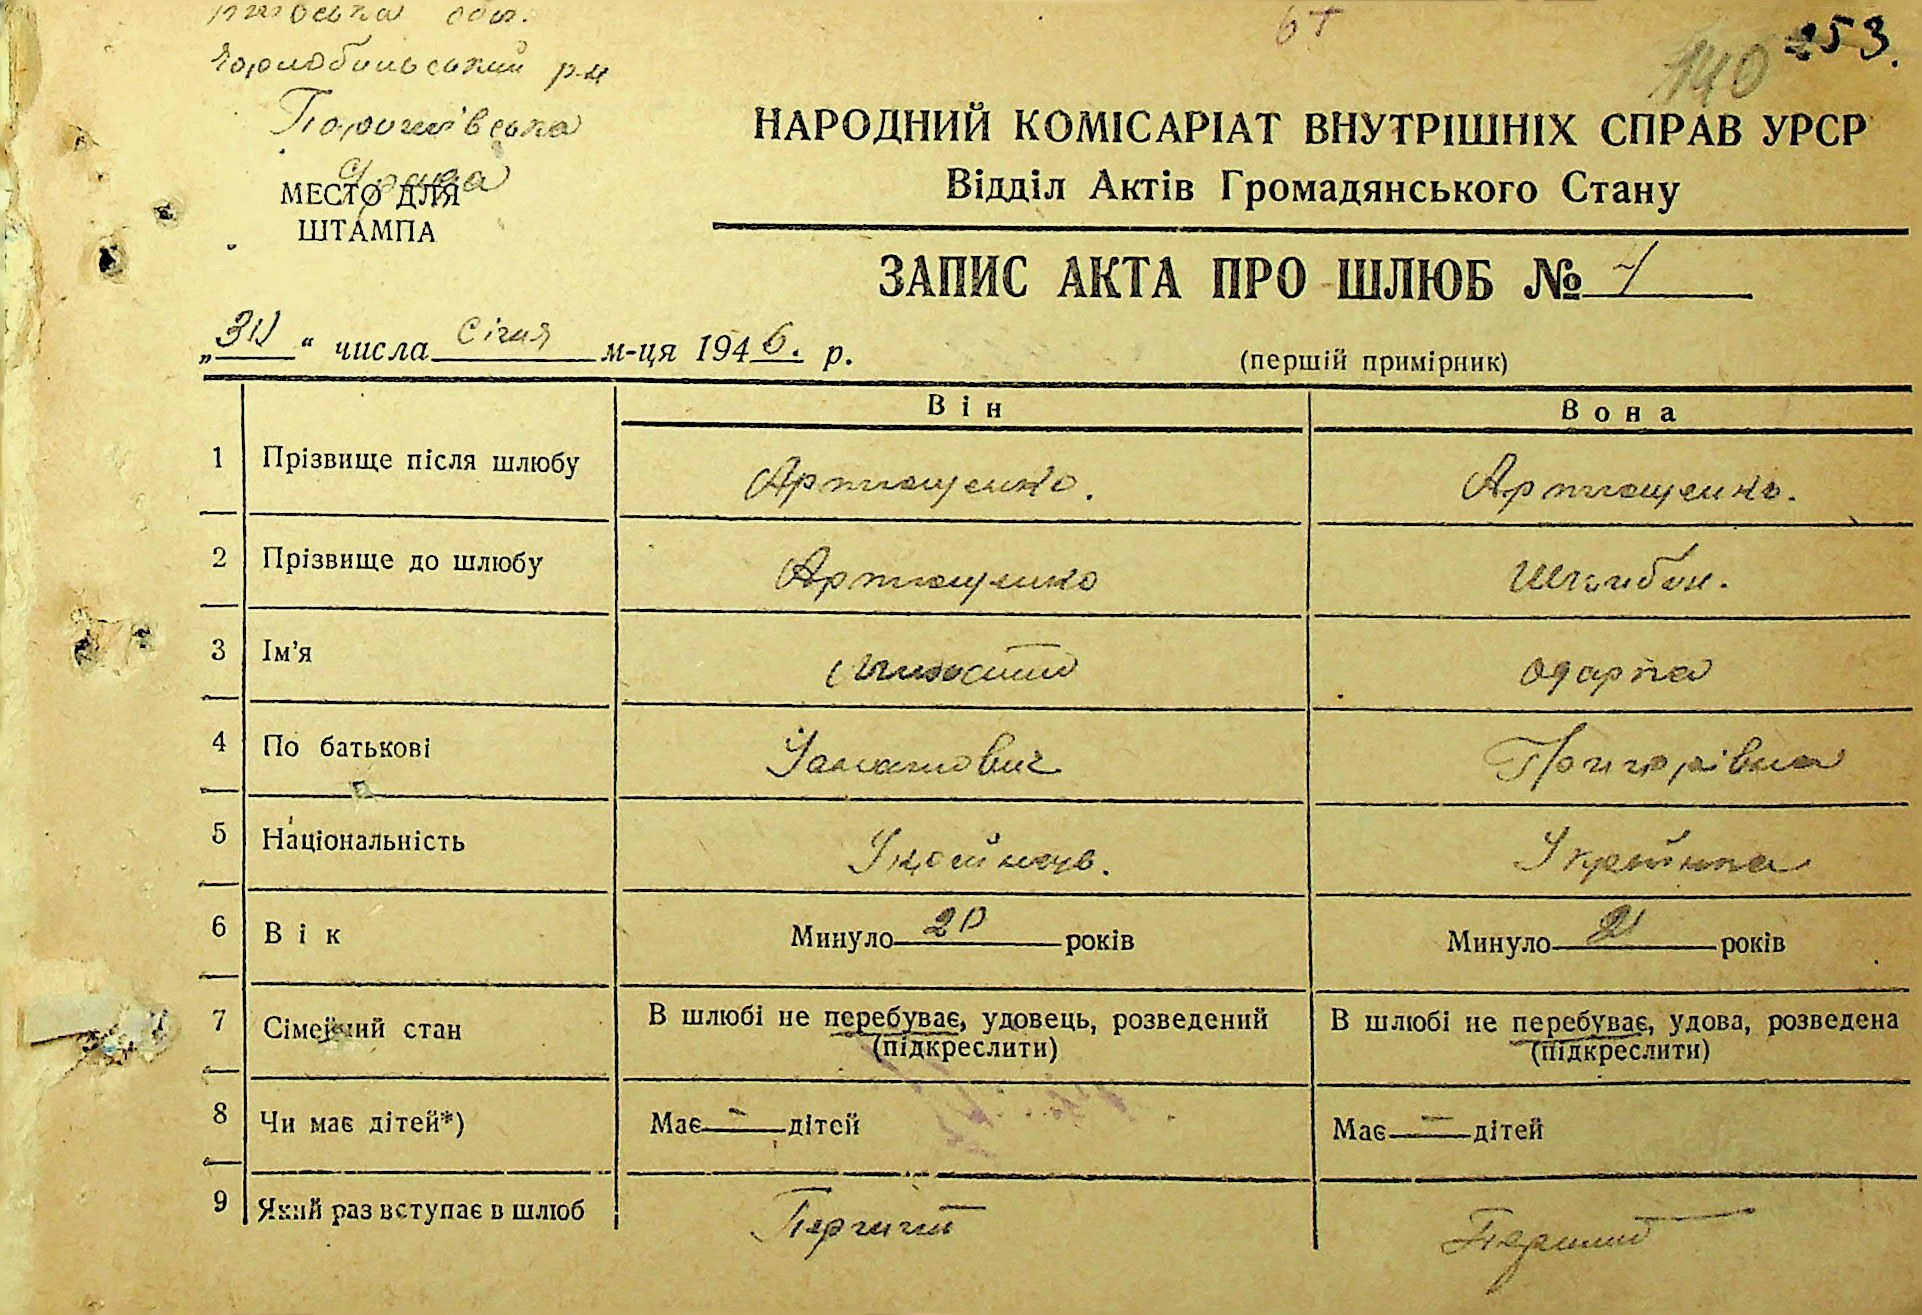 обл.
Чорнобильський р-н
МЕСТО ДЛЯ
ШТАМПА
253.
140
НАРОДНИЙ КОМІСАРІАТ ВНУТРІШНІХ СПРАВ УРСР
Відділ Актів Громадянського Стану
ЗАПИС АКТА ПРО ШЛЮБ №
„ “ числа Січня м-ця 1946. р.
(першій примірник)
Він Вона
1 Прізвище після шлюбу Артющенко. Артющенко.
2 Прізвище до шлюбу Артющенко
3 Ім’я Одарка
4 По батькові Григорівна
5 Національність Українець. Українка
6 Вік Минуло 20 років Минуло років
7 Сімейний стан В шлюбі не перебуває, удовець, розведений В шлюбі не перебуває, удова, розведена
(підкреслити) (підкреслити)
8 Чи має дітей*) Має — дітей Має — дітей
9 Який раз вступає в шлюб Перший Перший